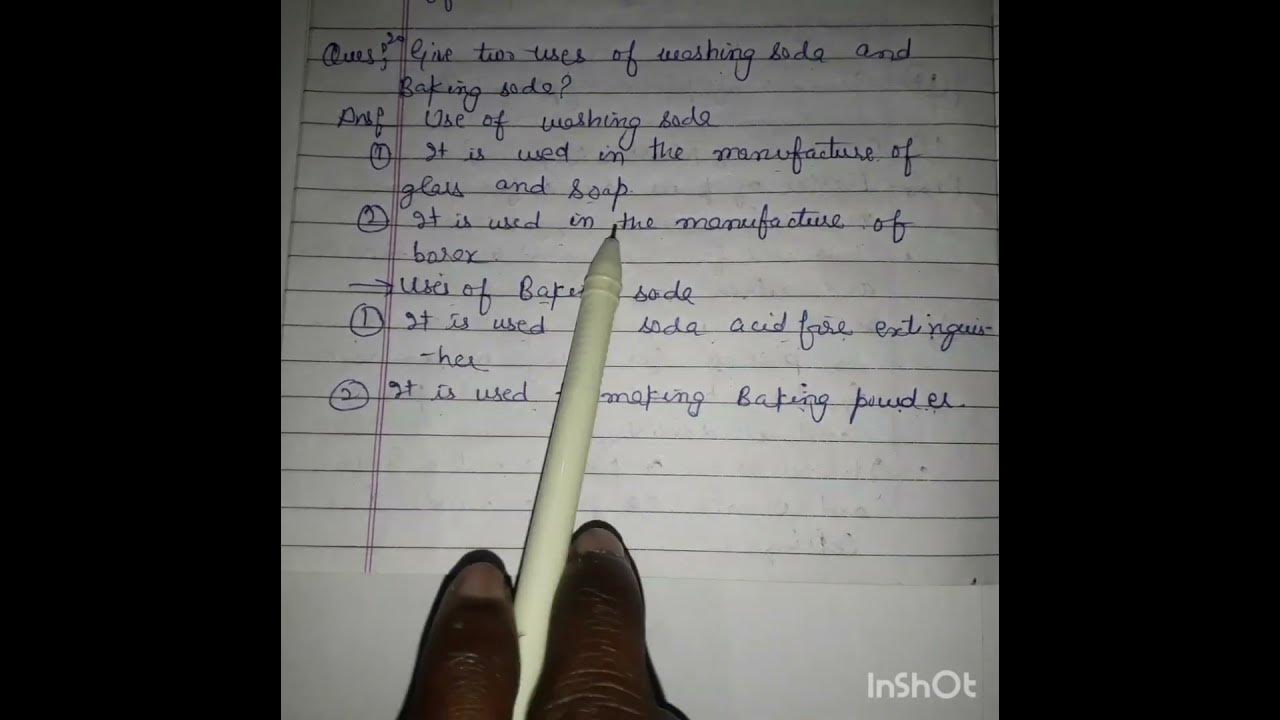 Ques:20 Give two uses of washing soda and
Baking soda?
Ans: Use of washing soda
① It is used in the manufacture of
glass and soap.
② It is used in the manufacture of
borex
→ Uses of Baking soda
① It is used soda acid fire extinguis-
-her
② It is used making Baking powder.
InShOt